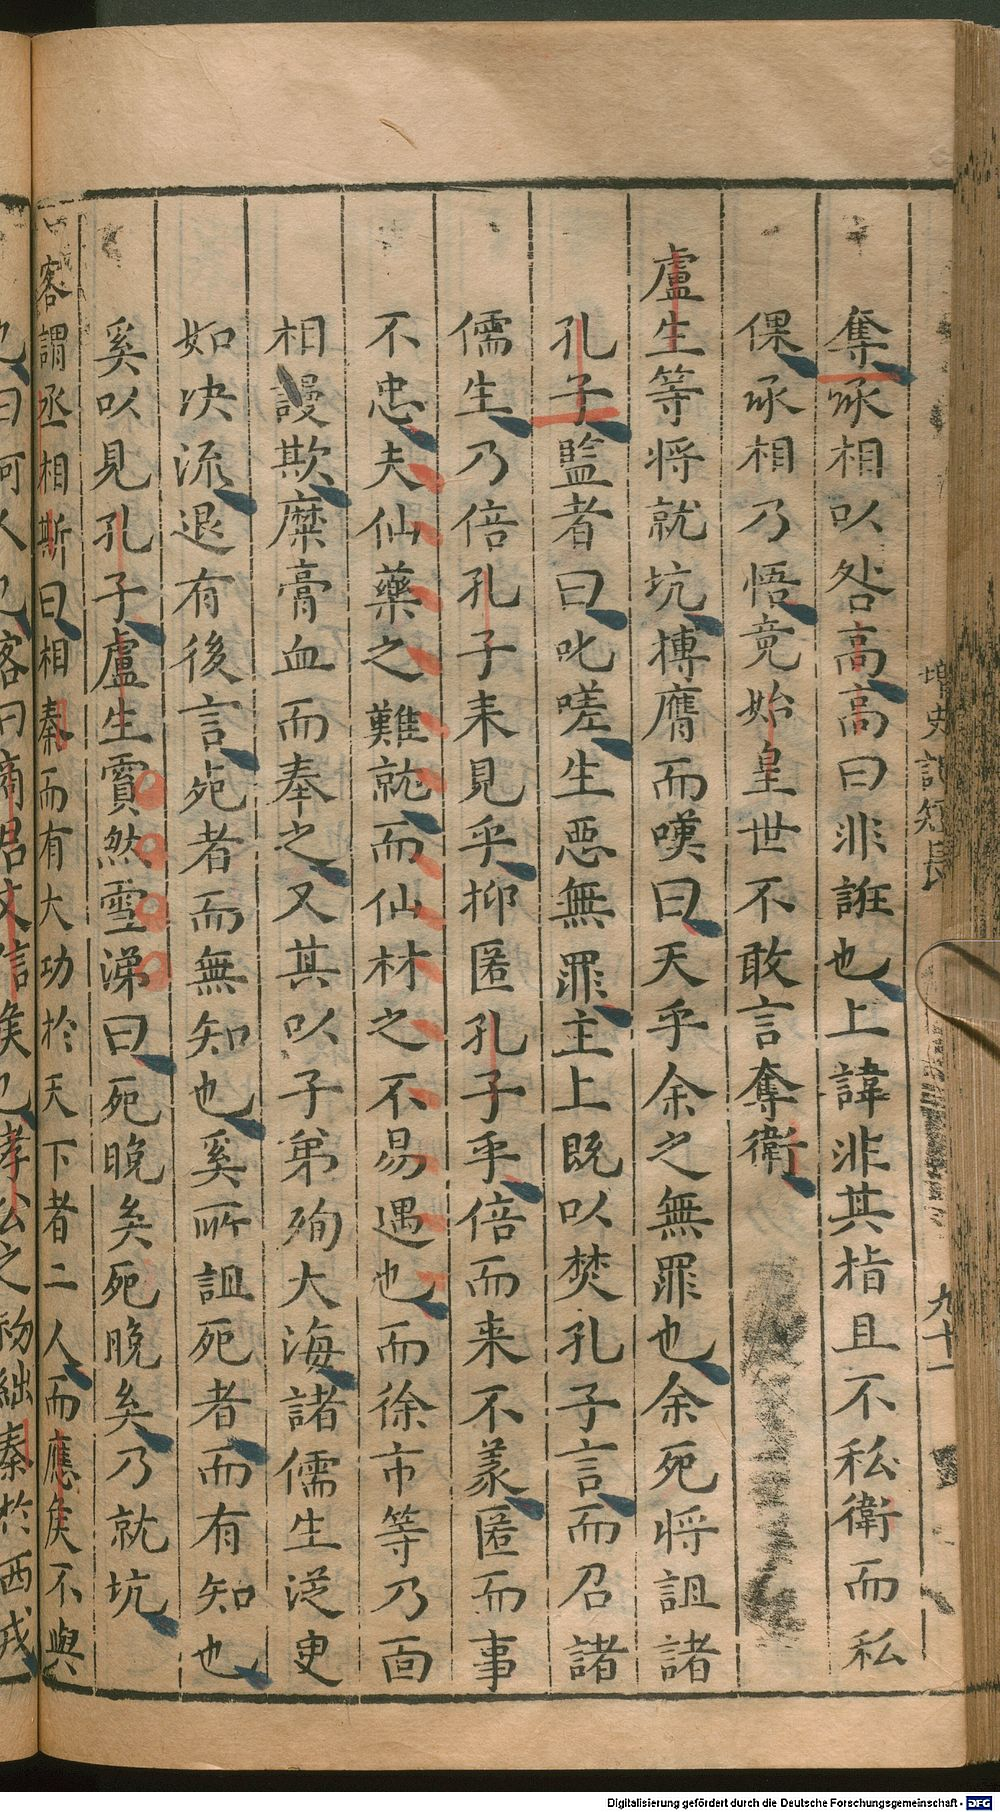 奪丞相以咎高高曰非誑也上諱非其指且不私衛而私
倮丞相乃悟竟始皇世不敢言奪衛
盧生等將就坑摶膺而嘆曰天乎余之無罪也余死將詛諸
孔子監者曰叱嗟生惡無罪主上既以焚孔子言而召諸
儒生乃倍孔子来見乎抑匿孔子乎倍而来不羕匿而事
不忠夫仙藥之難就而仙材之不易遇也而徐市等乃面
相謾欺糜膏血而奉之又其以子弟殉大海諸儒生从吏
如决流退有後言死者而無知也奚所詛死者而有知也
奚以見孔子盧生霣然雪涕曰死晚矣死晚矣乃就坑
客謂丞相斯曰相秦而有大功於天下者二人而應矦不與
也曰何人也客曰商君文信矦也孝公之初絀秦於西戎
增史記短長
九十一
Digitalisierung gefördert durch die Deutsche Forschungsgemeinschaft - DFG